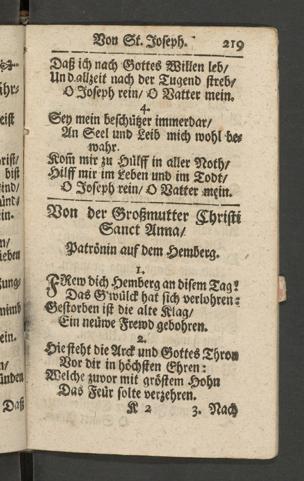 Von St. Joseph. 219
Daß ich nach Gottes Willen leb/
Und allzeit nach der Tugend streb/
O Joseph rein/ O Vatter mein.
4.
Sey mein beschützer immerdar/
An Seel und Leib mich wohl be-
wahr.
Kom̃ mir zu Hülff in aller Noth/
Hilff mir im Leben und im Todt/
O Joseph rein/ O Vatter mein.
Von der Großmutter Christi
Sanct Anna/
Patrönin auf dem Hemberg.
1.
FRew dich Hemberg an disem Tag!
Das G'wülck hat sich verlohren:
Gestorben ist die alte Klag/
Ein neüwe Frewd gebohren.
2.
Hie steht die Arck und Gottes Thron
Vor dir in höchsten Ehren:
Welche zuvor mit gröstem Hohn
Das Feür solte verzehren.
K 2 3. Nach